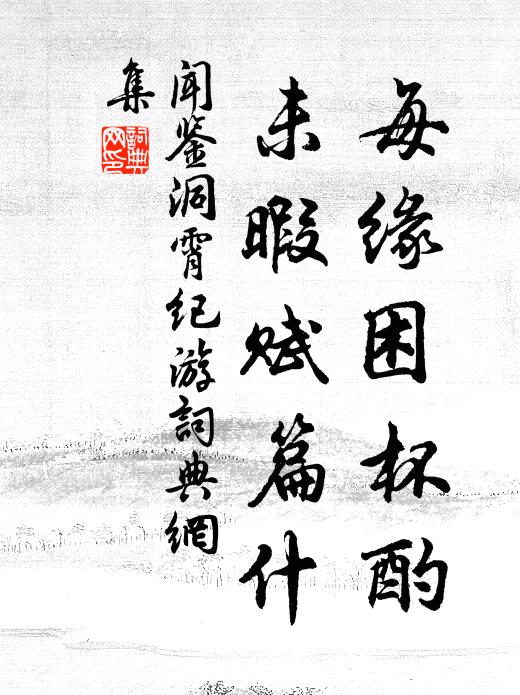 每缘困杯酌
未暇赋篇什
闻鉴洞霄纪游詞典網
集
詞典网印